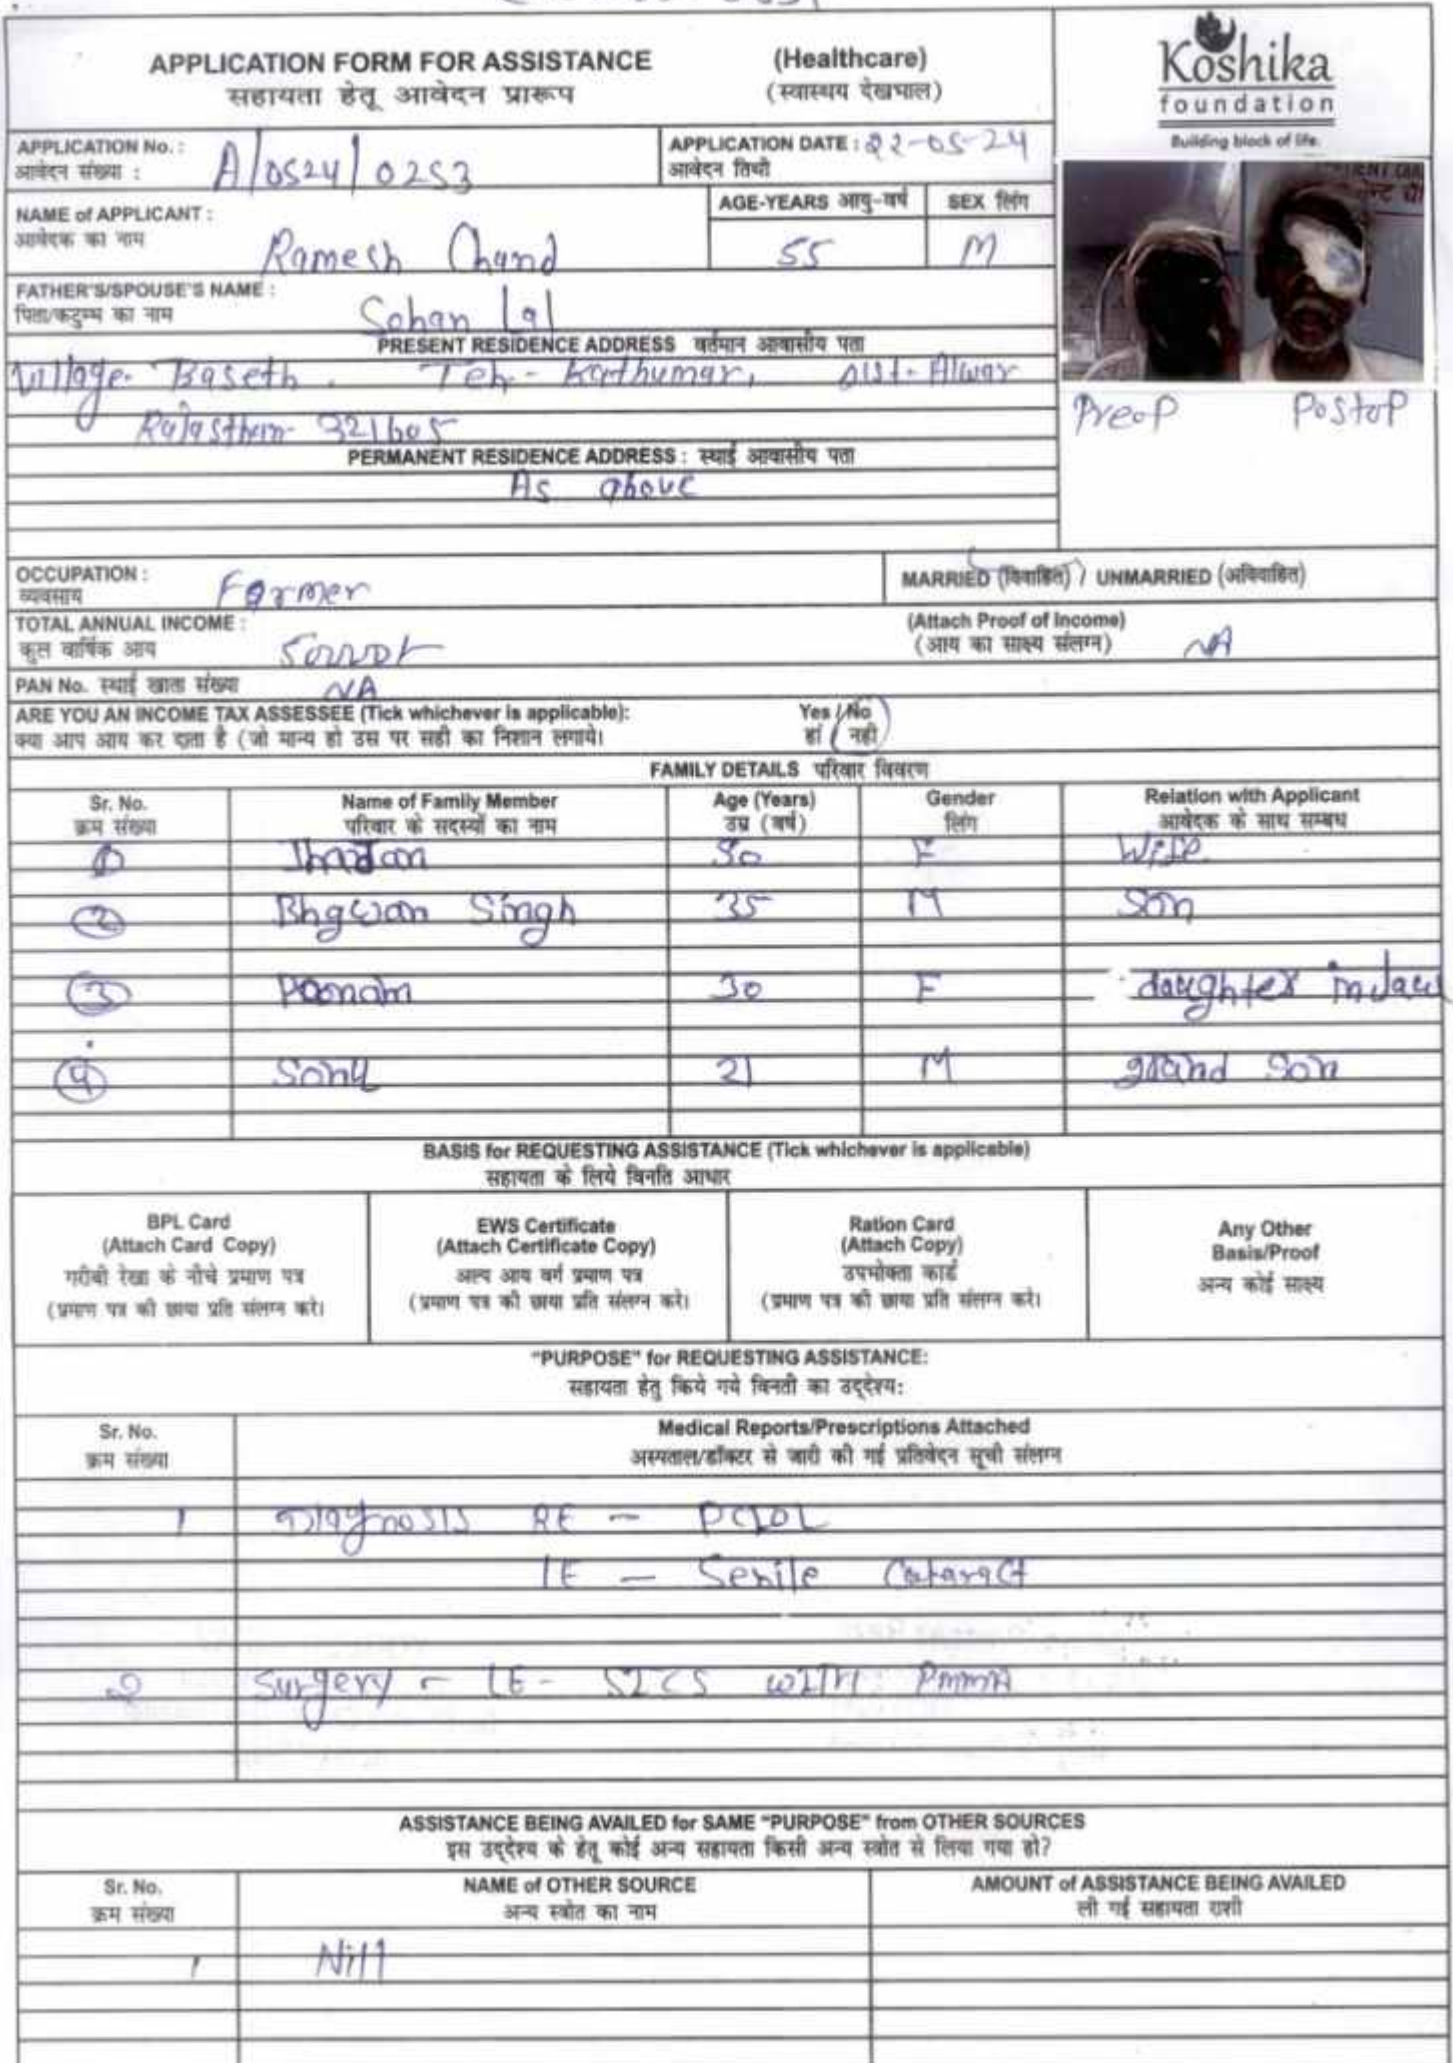 APPLICATION FORM FOR ASSISTANCE (Healthcare)
सहायता हेतू आवेदन प्रारूप (स्वास्थय देखभाल)
Koshika
foundation
Building block of life.
APPLICATION No. : A/0524/0253
आवेदन संख्या :
APPLICATION DATE : 22-05-24
आवेदन तिथी
NAME of APPLICANT : Ramesh Chand
आवेदक का नाम
AGE-YEARS आयु-वर्ष SEX लिंग
55 M
FATHER'S/SPOUSE'S NAME : Sohan Lal
पिता/कटुम्ब का नाम
PRESENT RESIDENCE ADDRESS वर्तमान आवासीय पता
Village- Baseth, Teh- Kathumar, Dist- Alwar
Rajasthan- 321605
Preop Postop
PERMANENT RESIDENCE ADDRESS : स्थाई आवासीय पता
As above
OCCUPATION : Farmer
व्यवसाय
MARRIED (विवाहित) / UNMARRIED (अविवाहित)
TOTAL ANNUAL INCOME :
कुल वार्षिक आय
(Attach Proof of Income)
(आय का साक्ष्य संलग्न) NA
PAN No. स्थाई खाता संख्या NA
ARE YOU AN INCOME TAX ASSESSEE (Tick whichever is applicable): Yes / No
क्या आप आय कर दाता है (जो मान्य हो उस पर सही का निशान लगाये। हां / नही
FAMILY DETAILS परिवार विवरण
Sr. No. Name of Family Member Age (Years) Gender Relation with Applicant
क्रम संख्या परिवार के सदस्यों का नाम उम्र (वर्ष) लिंग आवेदक के साथ सम्बध
1 50 F Wife
2 Bhgwan Singh 35 M Son
3 Poonam 30 F daughter in law
4 Sonu 21 M grand son
BASIS for REQUESTING ASSISTANCE (Tick whichever is applicable)
सहायता के लिये विनति आधार
BPL Card
(Attach Card Copy)
गरीबी रेखा के नीचे प्रमाण पत्र
(प्रमाण पत्र की छाया प्रति संलग्न करे।
EWS Certificate
(Attach Certificate Copy)
अल्प आय वर्ग प्रमाण पत्र
(प्रमाण पत्र की छाया प्रति संलग्न करे।
Ration Card
(Attach Copy)
उपभोक्ता कार्ड
(प्रमाण पत्र की छाया प्रति संलग्न करे।
Any Other
Basis/Proof
अन्य कोई साक्ष्य
"PURPOSE" for REQUESTING ASSISTANCE:
सहायता हेतु किये गये विनती का उद्देश्य:
Sr. No. Medical Reports/Prescriptions Attached
क्रम संख्या अस्पताल/डॉक्टर से जारी की गई प्रतिवेदन सूची संलग्न
1 Diagnosis RE - PCIOL
LE - Senile Cataract
2 Surgery - LE- SICS WITH PMMA
ASSISTANCE BEING AVAILED for SAME "PURPOSE" from OTHER SOURCES
इस उद्देश्य के हेतू कोई अन्य सहायता किसी अन्य स्त्रोत से लिया गया हो?
Sr. No. NAME of OTHER SOURCE AMOUNT of ASSISTANCE BEING AVAILED
क्रम संख्या अन्य स्त्रोत का नाम ली गई सहायता राशी
1 Nill